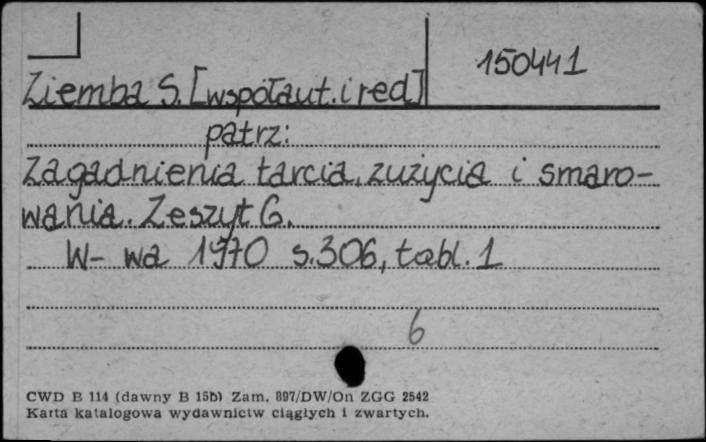 150441
Ziemba S. [współaut. i red]
patrz:
Zagadnienia tarcia, zużycia i smaro-
wania. Zeszyt 6.
W-wa 1970 s. 306, tabl. 1
6
CWD B 114 (dawny B 15b) Zam. 897/DW/On ZGG 2542
Karta katalogowa wydawnictw ciągłych i zwartych.